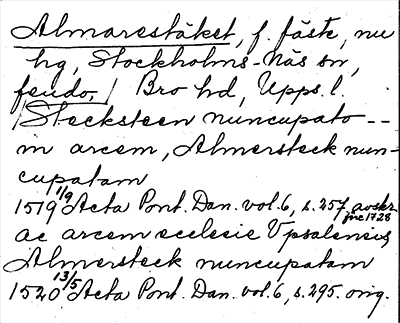 Almarestäket, f. fäste, nu
hg, Stockholms-Näs sn,
feudo, / Bro hd, Upps. l.
/Stecksteen nuncupato --
in arcem, Almersteck nun-
cupatam
1519 1/9 Acta Pont. Dan. vol. 6, s. 257 avskr.
nr 1728
ac arcem ecclesie Vpsalensis
Almersteck nuncupatam
1520 13/5 Acta Pont. Dan. vol. 6, s. 295. orig.